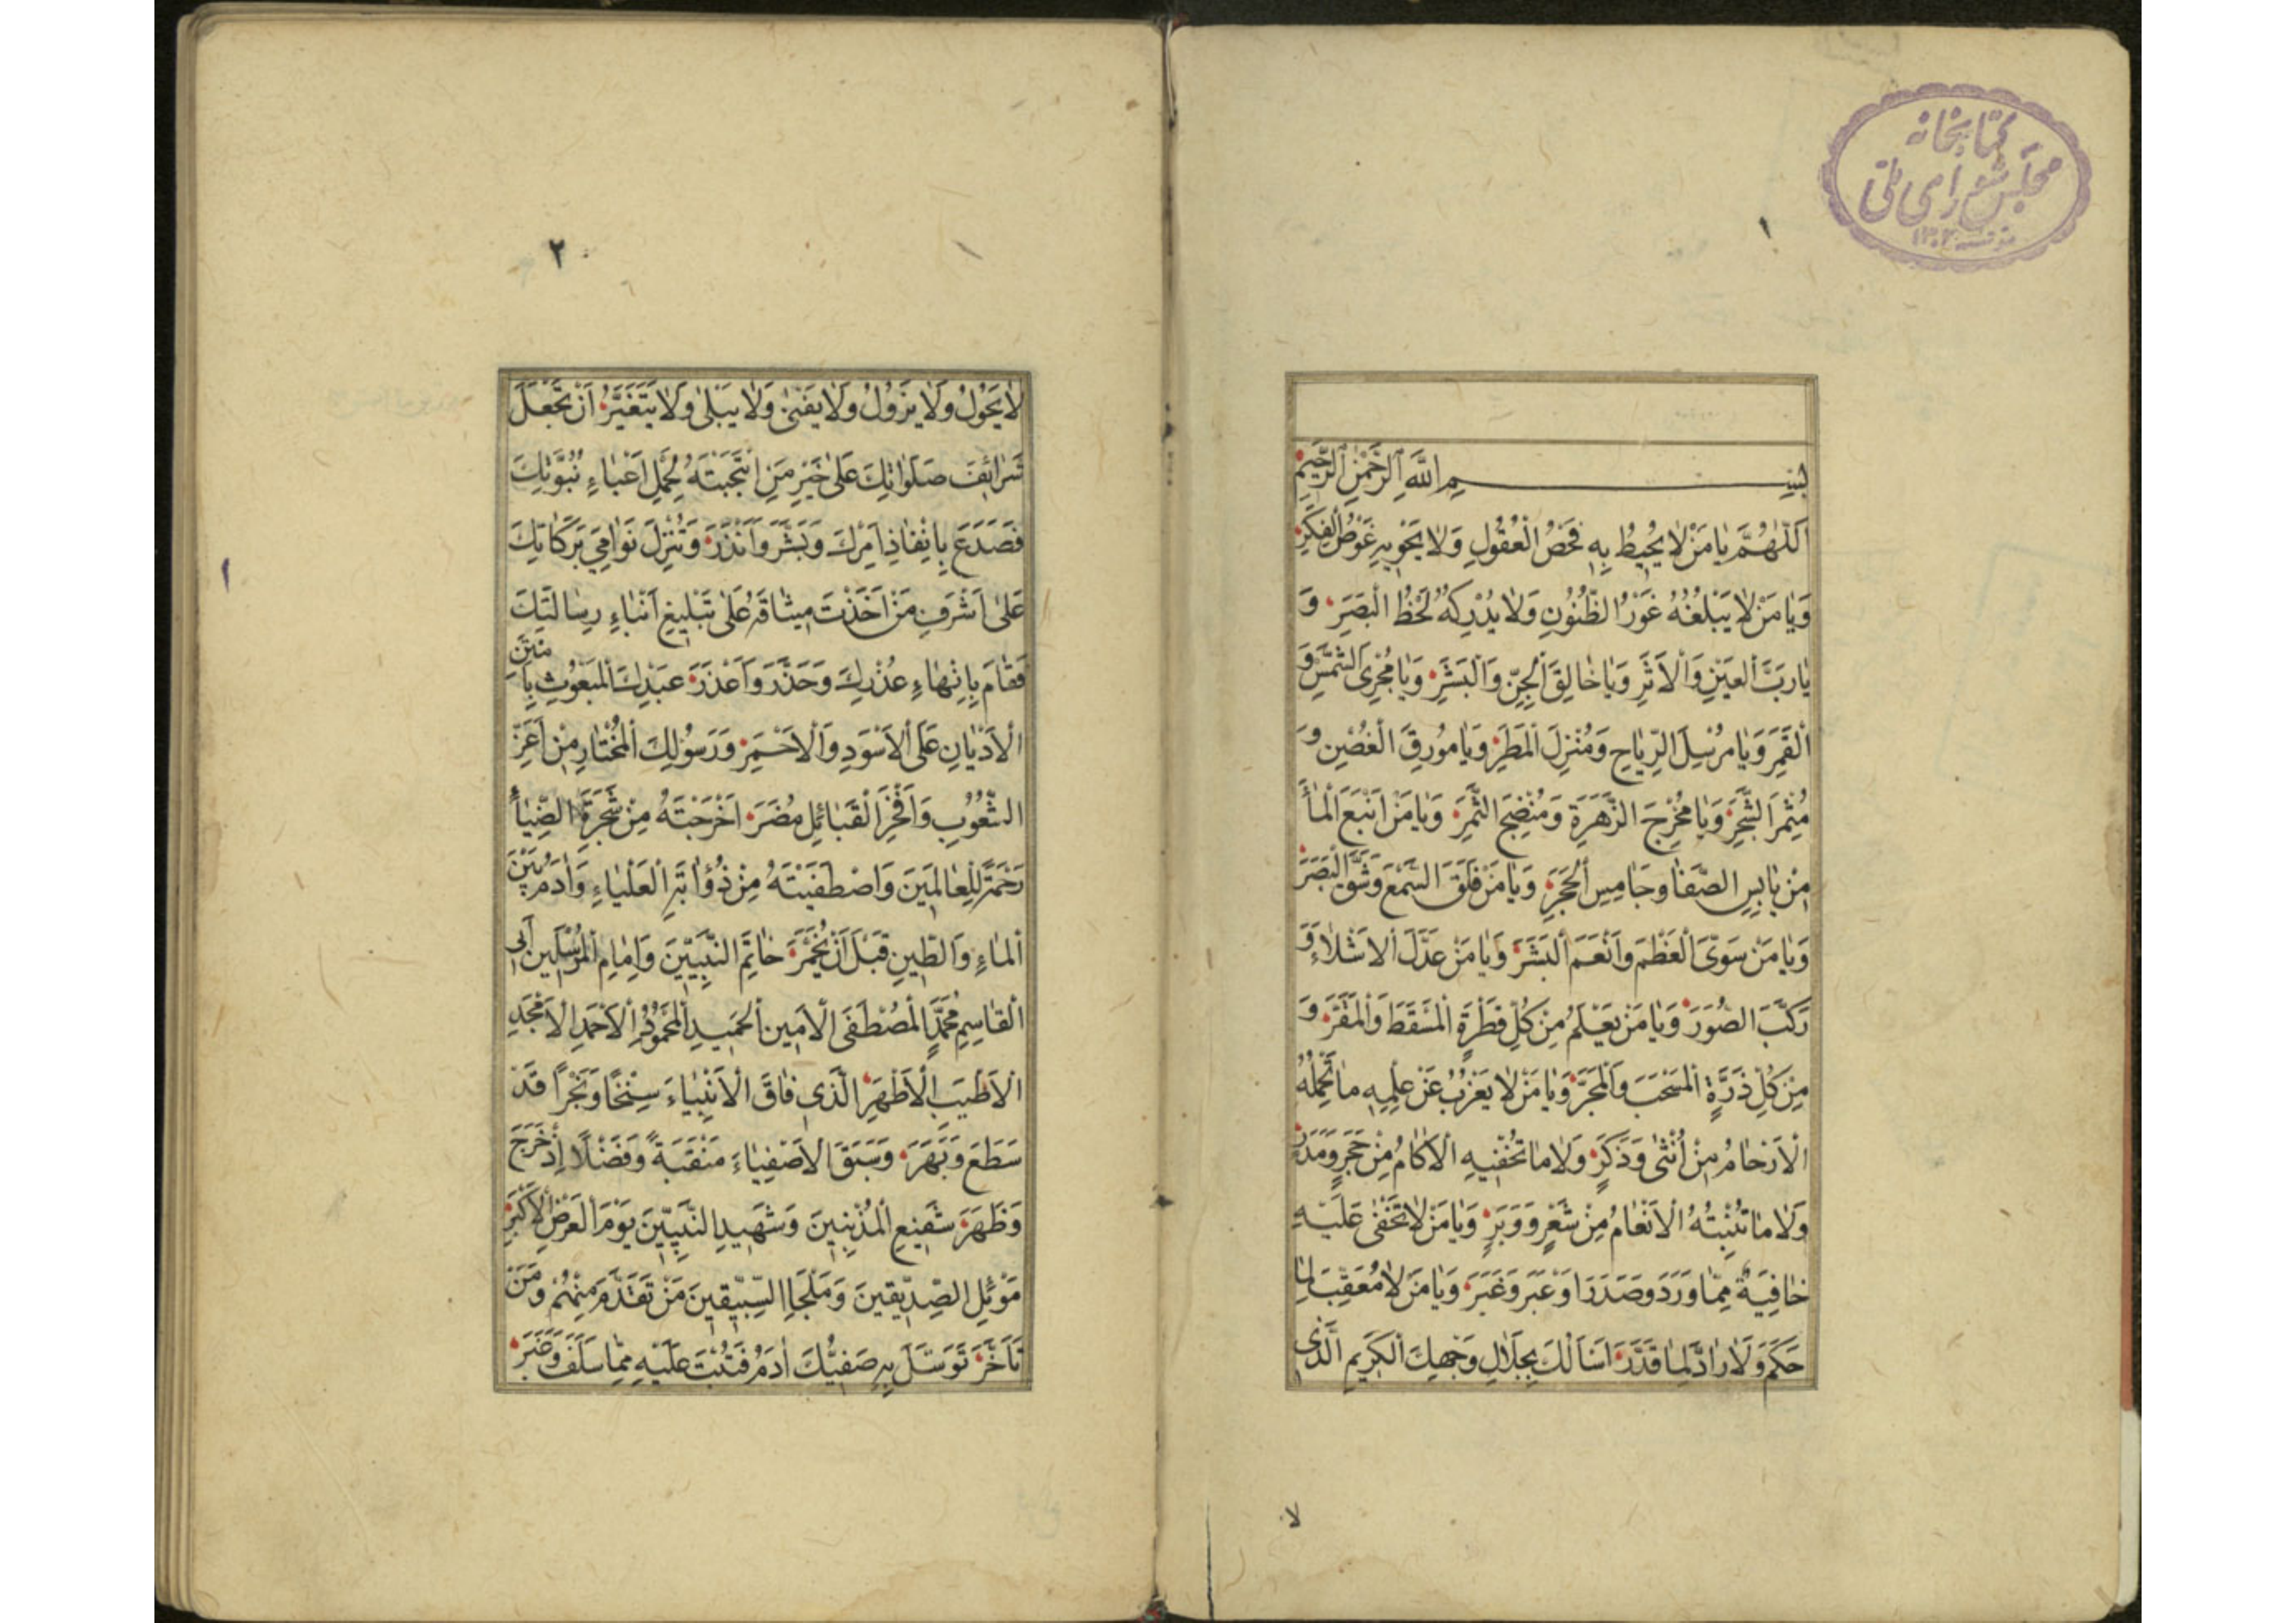 کتابخانه
مجلس شورای ملی
١٣٠٢
١
بِسْمِ اللَّهِ الرَّحْمٰنِ الرَّحِيمِ
اَللّٰهُمَّ يَا مَنْ لَا يُحِيطُ بِهِ فَحْصُ الْعُقُولِ وَلَا يَحْوِيهِ غَوْصُ الْفِكَرِ
وَيَا مَنْ لَا يَبْلُغُهُ غَوْرُ الظُّنُونِ وَلَا يُدْرِكُهُ لَحْظُ الْبَصَرِ وَ
يَا رَبَّ الْعَيْنِ وَالْاَثَرِ وَيَا خَالِقَ الْجِنِّ وَالْبَشَرِ وَيَا مُجْرِىَ الشَّمْسِ وَ
الْقَمَرِ وَيَا مُرْسِلَ الرِّيَاحِ وَمُنْزِلَ الْمَطَرِ وَيَا مُورِقَ الْغُصْنِ وَ
مُثْمِرَ الشَّجَرِ وَيَا مُخْرِجَ الزَّهَرَةِ وَمُنْضِجَ الثَّمَرِ وَيَا مَنْ اَنْبَعَ الْمَاءَ
مِنْ يَابِسِ الصَّفَا وَجَامِسِ الْحَجَرِ وَيَا مَنْ فَلَقَ السَّمْعَ وَشَقَّ الْبَصَرَ
وَيَا مَنْ سَوَّى الْعَظْمَ وَاَنْعَمَ الْبَشَرَ وَيَا مَنْ عَدَّلَ الْاَشْلَاءَ وَ
رَكَّبَ الصُّوَرَ وَيَا مَنْ يَعْلَمُ مِنْ كُلِّ قَطْرَةٍ الْمَسْقَطَ وَالْمَقَرَّ وَ
مِنْ كُلِّ ذَرَّةٍ الْمَسْحَبَ وَالْمَجَرَّ وَيَا مَنْ لَا يَعْزُبُ عَنْ عِلْمِهِ مَا تَحْمِلُهُ
الْاَرْحَامُ مِنْ اُنْثٰى وَذَكَرٍ وَلَا مَا تُخْفِيهِ الْاٰكَامُ مِنْ حَجَرٍ وَمَدَرٍ
وَلَا مَا تُنْبِتُهُ الْاَنْعَامُ مِنْ شَعْرٍ وَوَبَرٍ وَيَا مَنْ لَا تَخْفٰى عَلَيْهِ
خَافِيَةٌ مِمَّا وَرَدَ وَصَدَرَ اَوْ عَبَرَ وَغَبَرَ وَيَا مَنْ لَا مُعَقِّبَ لِمَا
حَكَمَ وَلَا رَادَّ لِمَا قَدَّرَ اَسْأَلُكَ بِجَلَالِ وَجْهِكَ الْكَرِيمِ الَّذِى
لا
٢
١
لَا يَحُولُ وَلَا يَزُولُ وَلَا يَفْنٰى وَلَا يَبْلٰى وَلَا يَتَغَيَّرُ اَنْ تَجْعَلَ
شَرَائِفَ صَلَوَاتِكَ عَلٰى خَيْرِ مَنِ انْتَجَبْتَهُ لِحَمْلِ اَعْبَاءِ نُبُوَّتِكَ
فَصَدَعَ بِاِنْفَاذِ اَمْرِكَ وَبَشَّرَ وَاَنْذَرَ وَتُنْزِلَ نَوَامِيَ بَرَكَاتِكَ
عَلٰى اَشْرَفِ مَنْ اَخَذْتَ مِيثَاقَهُ عَلٰى تَبْلِيغِ اَنْبَاءِ رِسَالَتِكَ
فَقَامَ بِاِنْهَاءِ عُذْرِكَ وَحَذَّرَ وَاَعْذَرَ عَبْدِكَ الْمَبْعُوثِ بِاَمْتَنِ
الْاَدْيَانِ عَلَى الْاَسْوَدِ وَالْاَحْمَرِ وَرَسُولِكَ الْمُخْتَارِ مِنْ اَعَزِّ
الشُّعُوبِ وَاَفْخَرِ الْقَبَائِلِ مُضَرَ اَخْرَجْتَهُ مِنْ شَجَرَةِ الضِّيَاءِ
رَحْمَةً لِلْعَالَمِينَ وَاصْطَفَيْتَهُ مِنْ ذُؤَابَةِ الْعَلْيَاءِ وَاٰدَمُ بَيْنَ
الْمَاءِ وَالطِّينِ قَبْلَ اَنْ يُخَمَّرَ خَاتَمِ النَّبِيِّينَ وَاِمَامِ الْمُرْسَلِينَ اَبِى
الْقَاسِمِ مُحَمَّدٍ الْمُصْطَفَى الْاَمِينِ الْحَمِيدِ الْمَحْمُودِ الْاَحْمَدِ الْاَمْجَدِ
الْاَطْيَبِ الْاَطْهَرِ الَّذِى فَاقَ الْاَنْبِيَاءَ سِنْخًا وَنَجْرًا قَدْ
سَطَعَ وَبَهَرَ وَسَبَقَ الْاَصْفِيَاءَ مَنْقَبَةً وَفَضْلًا اِذْ خَرَجَ
وَظَهَرَ شَفِيعِ الْمُذْنِبِينَ وَشَهِيدِ النَّبِيِّينَ يَوْمَ الْعَرْضِ الْاَكْبَرِ
مَوْئِلِ الصِّدِّيقِينَ وَمَلْجَاِ السِّبِّيقِينَ مَنْ تَقَدَّمَ مِنْهُمْ وَمَنْ
تَأَخَّرَ تَوَسَّلَ بِهِ صَفِيُّكَ اٰدَمُ فَتُبْتَ عَلَيْهِ مِمَّا سَلَفَ وَغَبَرَ